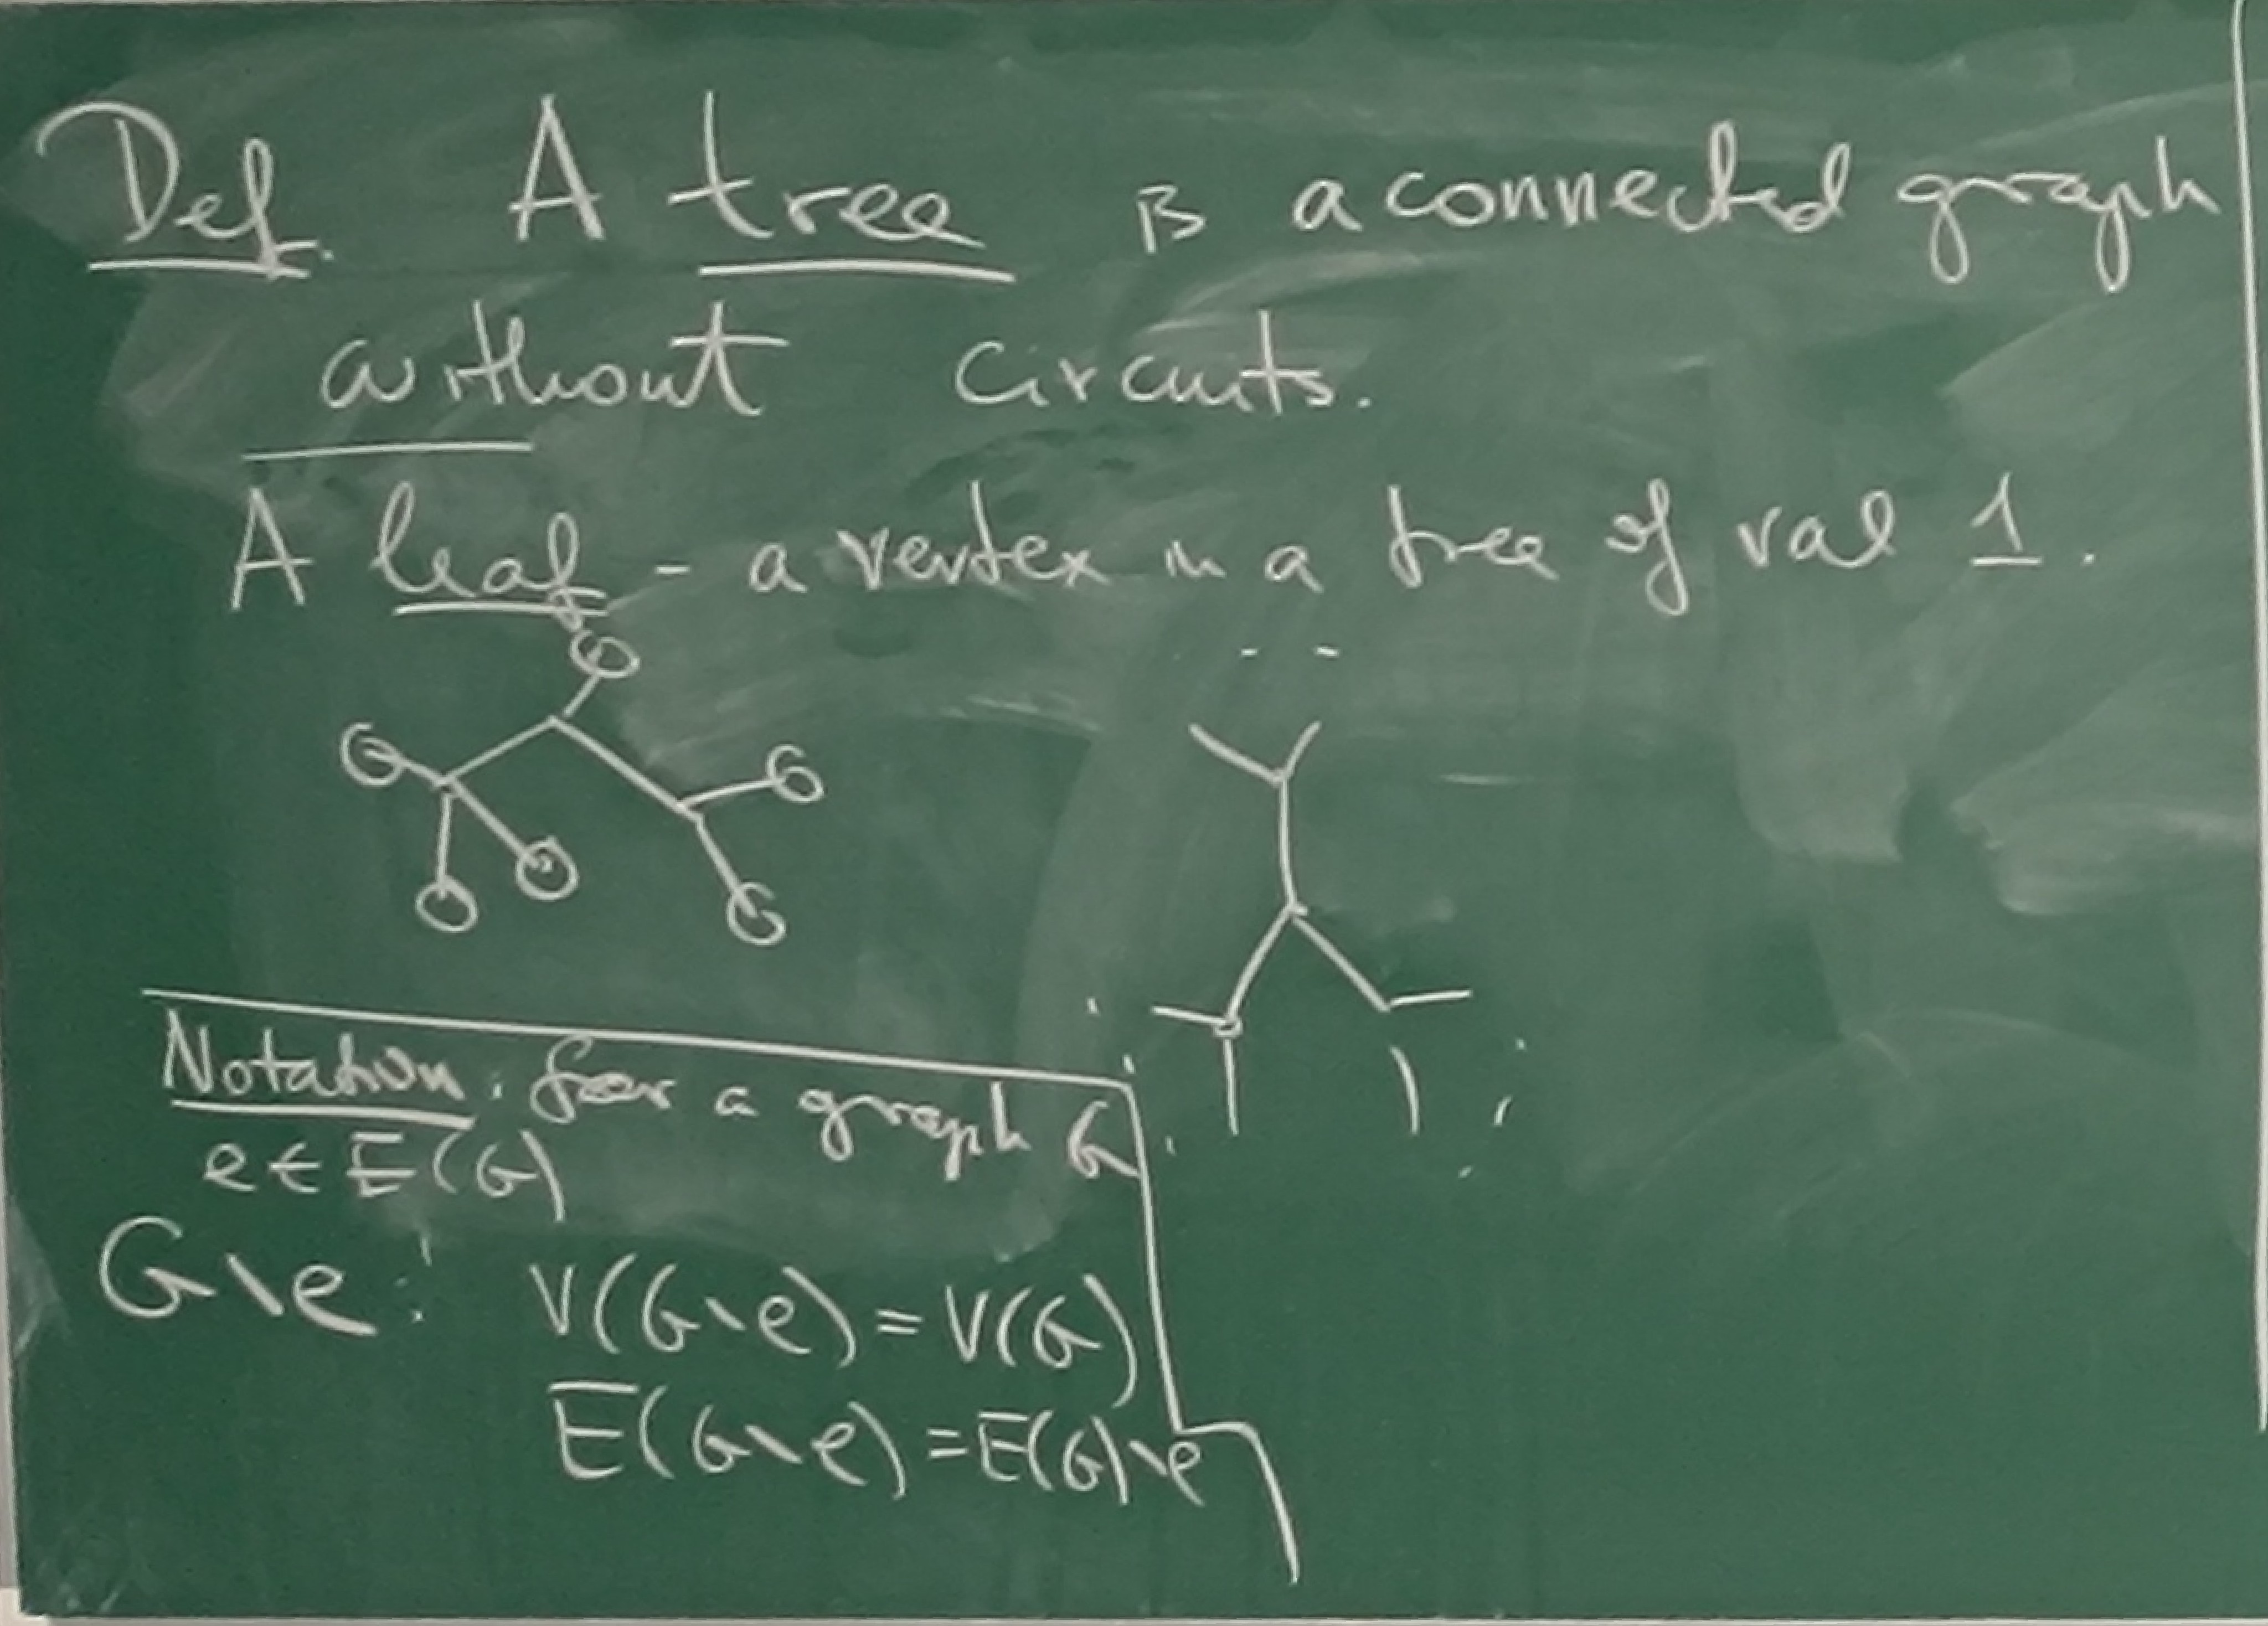 Def. A tree is a connected graph
without circuits.
A leaf - a vertex in a tree of val 1.
Notation. for a graph G
e ∈ E(G)
G\e: V(G\e) = V(G)
E(G\e) = E(G)\e